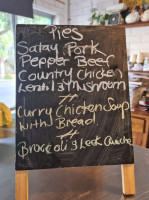 Pies
Satay Pork
Pepper Beef
Country Chicken
Lentil & Mushroom
Curry Chicken Soup
with Bread
Broccoli & Leek Quiche